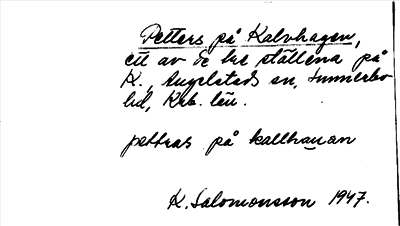 Petters på Kalvhagen,
ett av de tre ställena på
K., Angelstads sn, Sunnerbo
hd, Krb. län.
pettras på kallhauan
K. Salomonsson 1947.